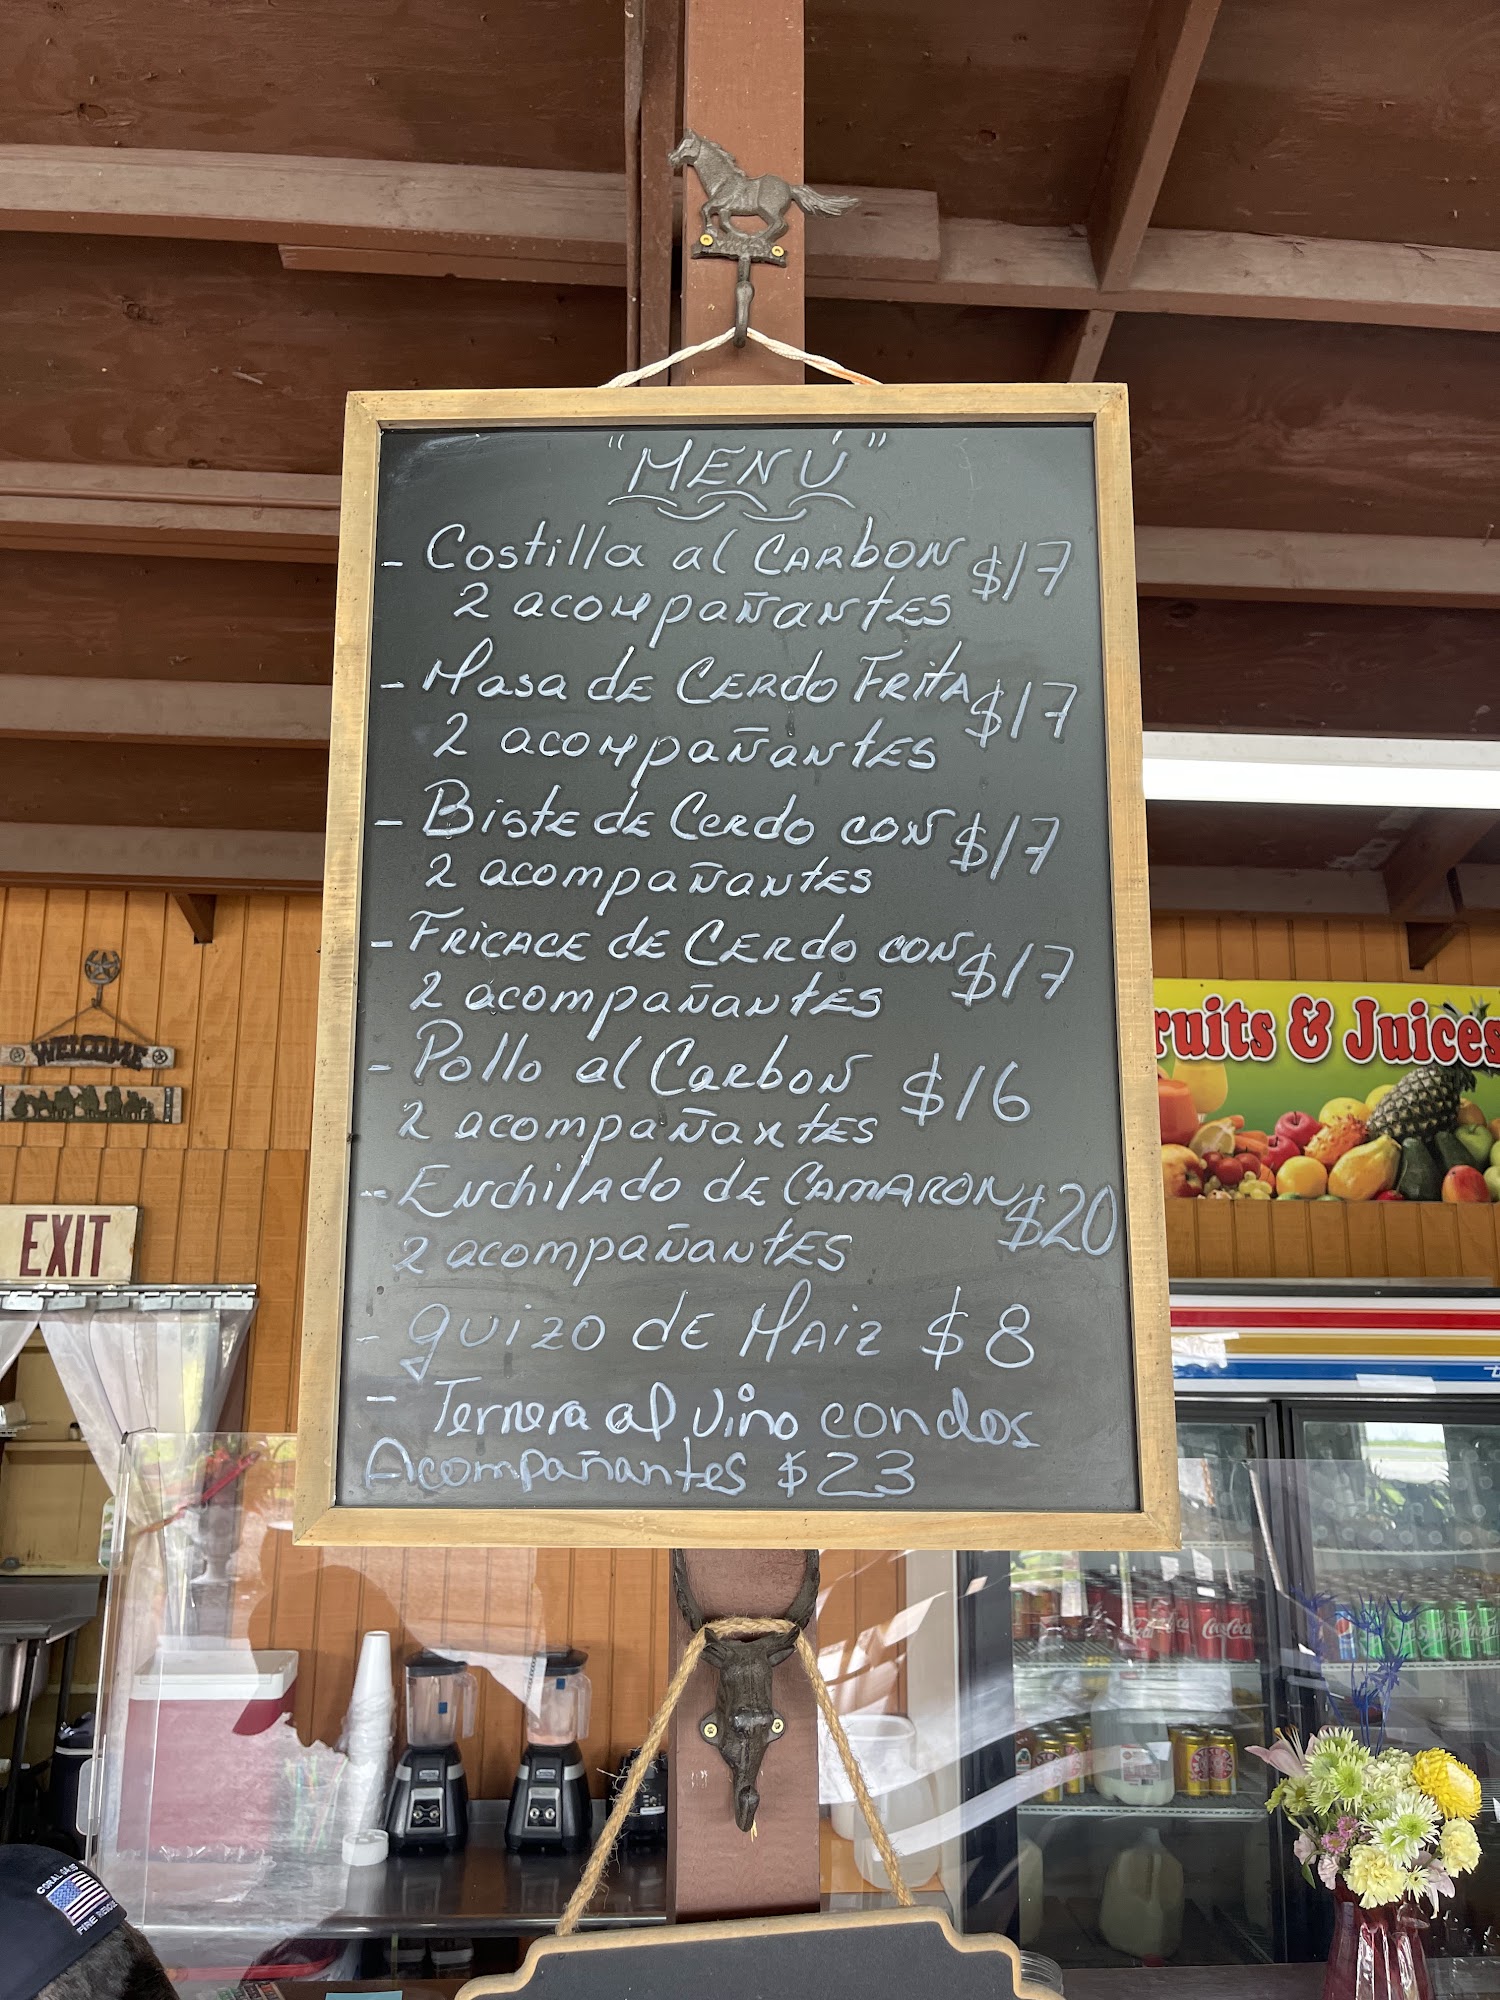 "MENÚ"
- Costilla al CARBON $17
2 acompañantes
- Masa de Cerdo Frita $17
2 acompañantes
- Biste de Cerdo con $17
2 acompañantes
- Fricace de Cerdo con $17
2 acompañantes
- Pollo al Carbon $16
2 acompañantes
- Enchilado de Camaron $20
2 acompañantes
- guizo de Maiz $8
- Ternera al vino con dos
Acompañantes $23
WELCOME
EXIT
ruits & Juices
Coca-Cola
FIRE RESCUE